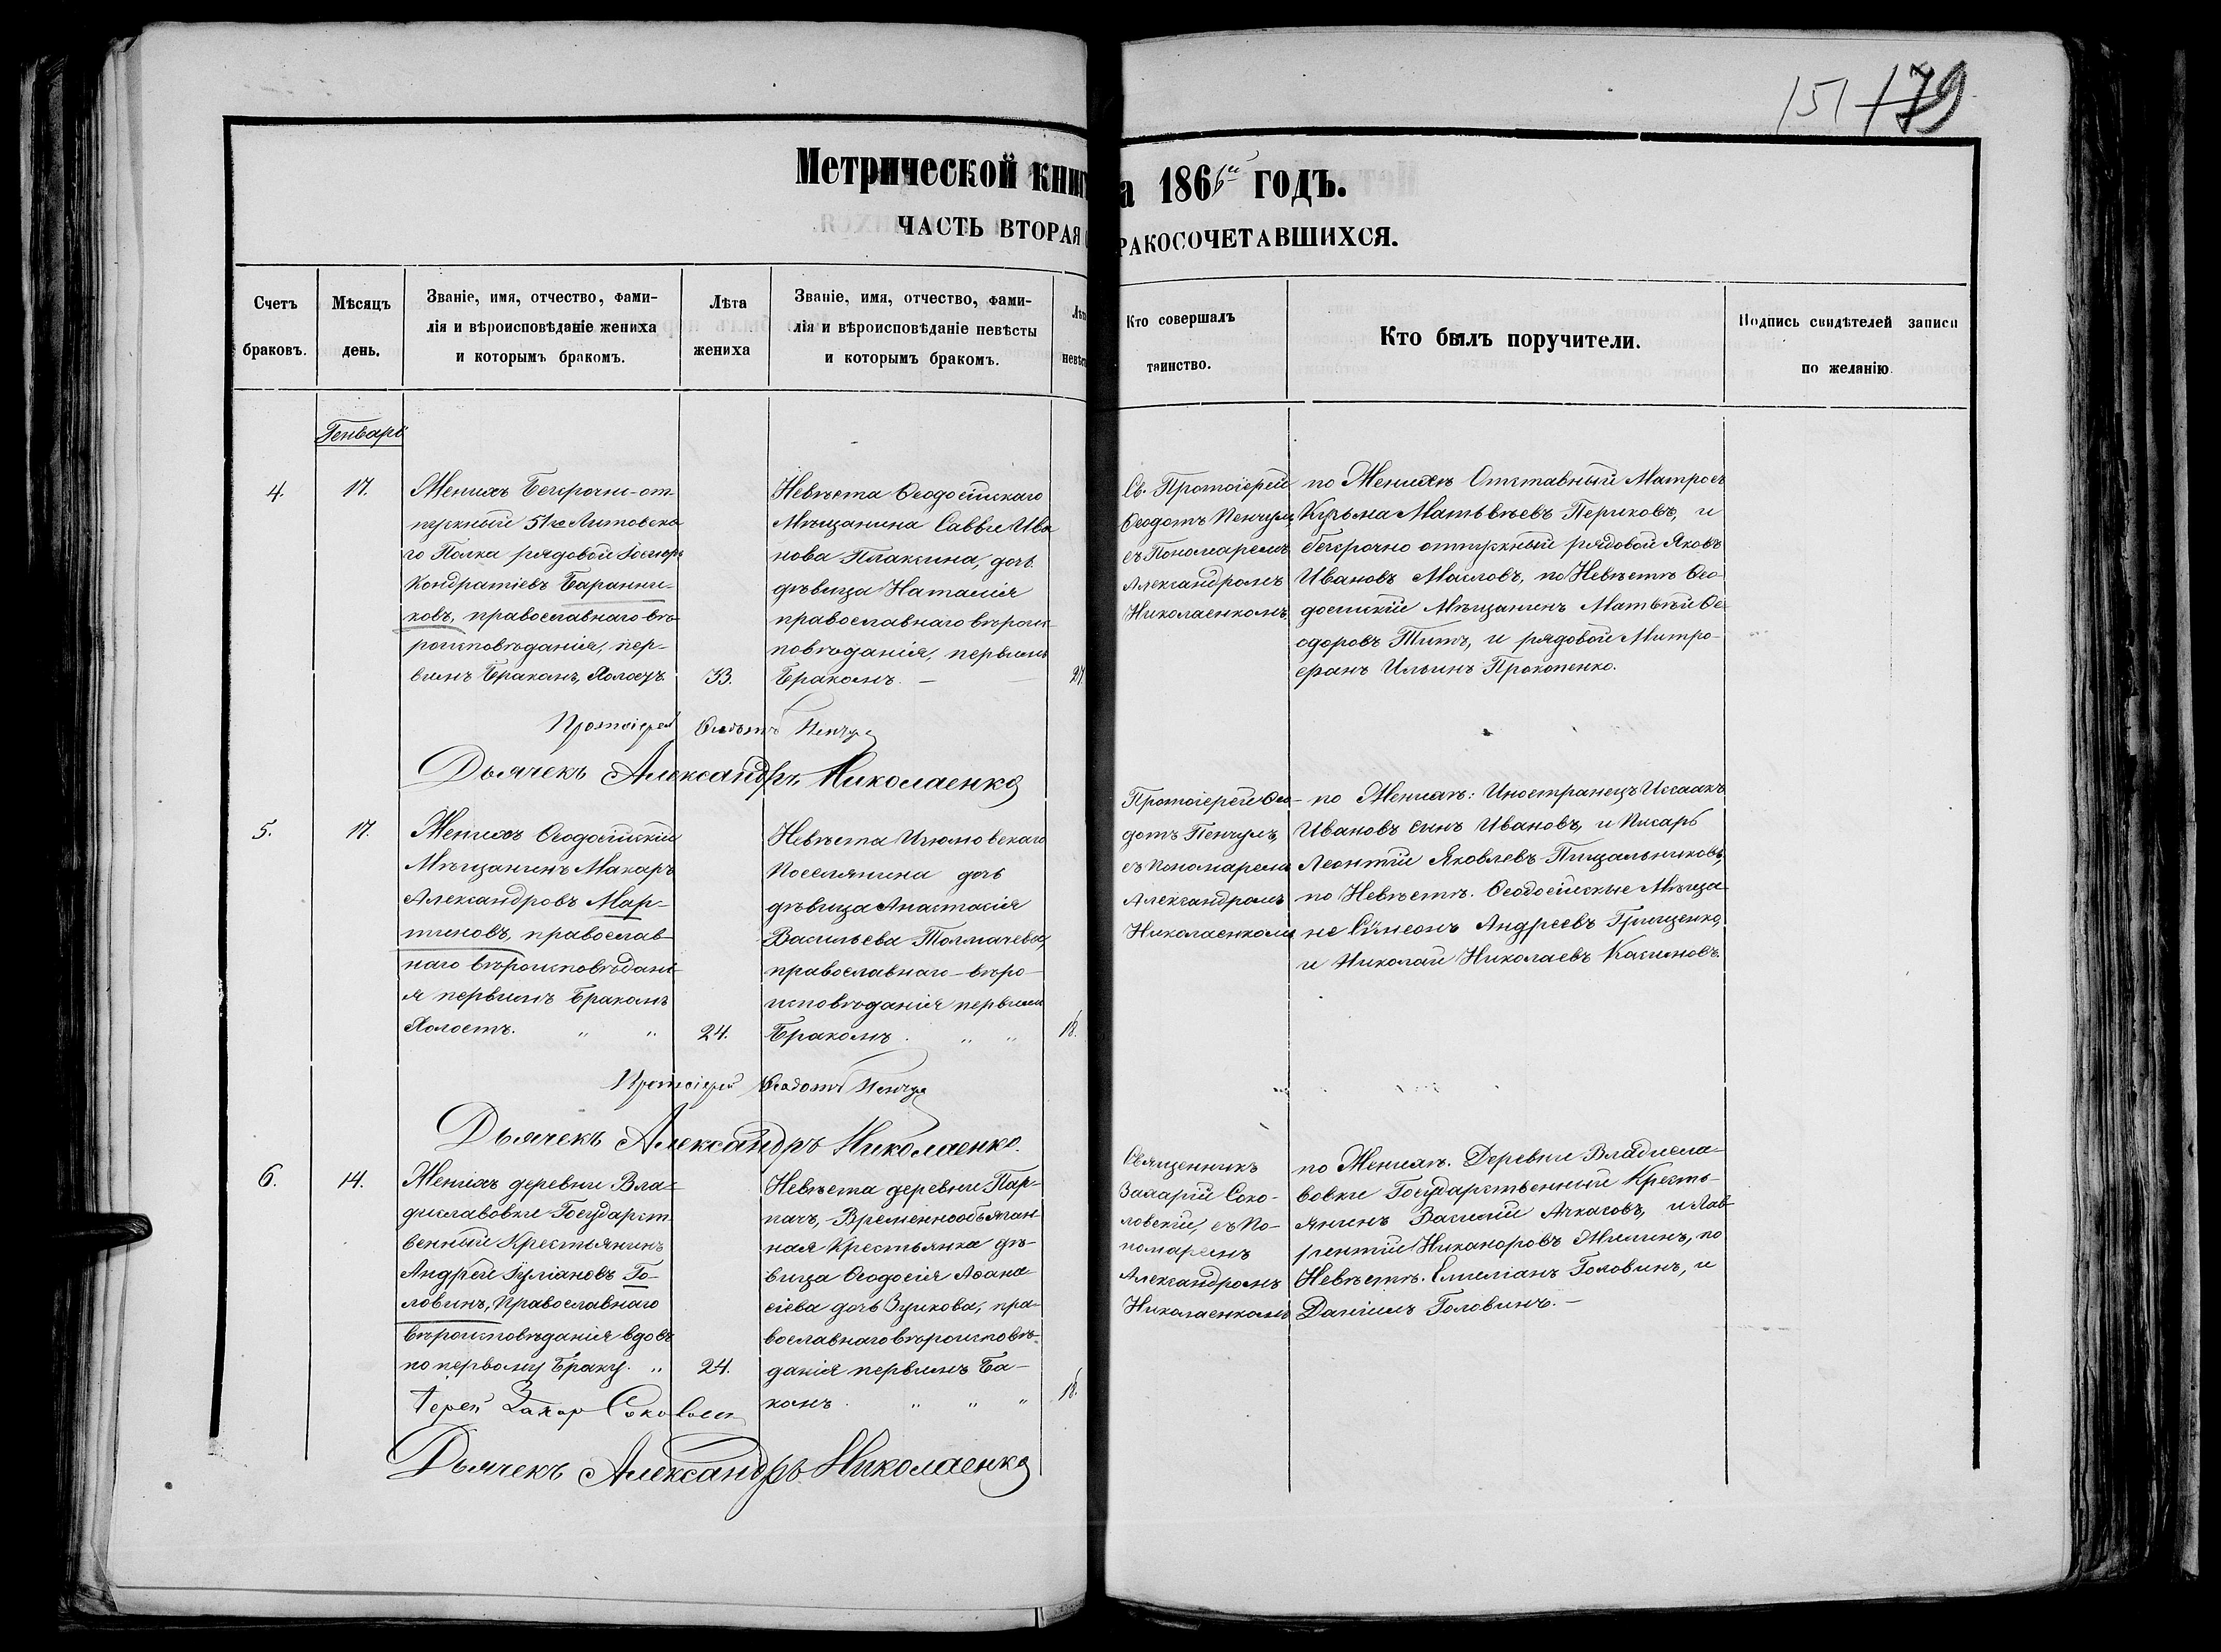 151 179
Метрической книг
а 1866й ГОДЪ.
ЧАСТЬ ВТОРАЯ
РАКОСОЧЕТАВШИХСЯ.
Счетъ
браковъ.
Мѣсяцъ
день.
Званіе, имя, отчество, фами-
лія и вѣроисповѣданіе жениха
и которымъ бракомъ.
Лѣта
жениха
Званіе, имя, отчество, фами-
лія и вѣроисповѣданіе невѣсты
и которымъ бракомъ.
Кто совершалъ
таинство.
Кто былъ поручители.
Подпись свидѣтелей записи
по желанію.
Генварь
4.
17.
Женихъ Безсрочно-от-
пускный 51го Литовска
го Полка рядовой
Кондратіевъ Баранни-
ковъ, православнаго вѣ-
роисповѣданія, пер-
вымъ Бракомъ, Холостъ
33.
Невѣста Ѳеодосійскаго
Мѣщанина Саввы Ива
нова Плаксина, дочь
дѣвица Наталія
православнаго вѣроис-
повѣданія, первымъ
Бракомъ. —
21.
Св. Протоіерей
Ѳеодотъ Пенчулъ,
съ Пономаремъ
Александромъ
Николаенкомъ
по Женихѣ Отставный Матросъ
Кузьма Матьвѣевъ Периковъ, и
безсрочно отпускный рядовой Яковъ
Ивановъ Масловъ, по Невѣстѣ Ѳео-
досійскій Мѣщанинъ Матвѣй Ѳе-
одоровъ Титъ, и рядовой Митро-
фанъ Ильинъ Прокопенко.
Протоіерей Ѳеодотъ Пенчул
Дьячекъ Александръ Николаенко
5.
17.
Женихъ Ѳеодосійскій
Мѣщанинъ Макаръ
Александровъ Мар-
тыновъ, православ-
наго вѣроисповѣдані-
я первымъ Бракомъ
Холостъ. " "
24.
Невѣста Изюмовскаго
Поселянина дочь
дѣвица Анастасія
Васильева Толмачева,
православнаго-вѣро-
исповѣданія первымъ
Бракомъ. " "
18.
Протоіерей Ѳео-
дотъ Пенчулъ,
съ Пономаремъ
Александромъ
Николаенкомъ
по Женихѣ: Иностранецъ Исаакъ
Ивановъ сынъ Ивановъ, и Писарь
Леонтій Яковлевъ Пищальниковъ,
по Невѣстѣ. Ѳеодосійскіе Мѣща-
не Сѵмеонъ Андреевъ Грищенко,
и Николай Николаевъ Касимовъ.
Протоіерей Ѳеодотъ Пенчул
Дьячекъ Александръ Николаенко.
6.
14.
Женихъ деревни Вла-
диславовки Государст-
венный Крестьянинъ
Андрей Іуліановъ Го-
ловинъ, Православнаго
вѣроисповѣданія вдовъ
по первому Браку. "
24.
Невѣста деревни Пар-
пачъ, Временнообязан-
ная Крестьянка дѣ-
вица Ѳеодосія Аѳана-
сіева дочь Зуикова, пра-
вославнаго вѣроисповѣ-
данія первымъ Ба-
комъ. " " "
18.
Священникъ
Захарій Соко-
ловскій, съ По-
номаремъ
Александромъ
Николаенкомъ
по Женихѣ. Деревни Владисла-
вовки Государственный Кресть-
янинъ Василій Ачкасовъ, и Лав-
рентій Никаноровъ по
Невѣстѣ. Емеліанъ Головинъ, и
Даніилъ Головинъ. —
Іерей Захар
Дьячекъ Александръ Николаенко